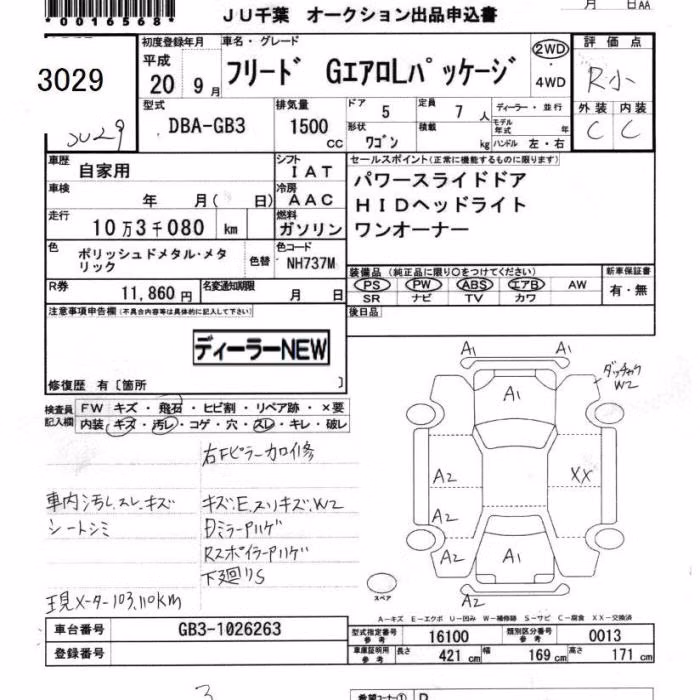 *00165568*
JU千葉 オークション出品申込書
月 日AA
3029
JU29
初度登録年月
平成
20 9月
車名・グレード
フリード GエアロLパッケージ
2WD
4WD
評価点
R小
外装 内装
C C
型式
DBA-GB3
排気量
1500 CC
ドア 5
定員 7 人
形状 ワゴン
積載 kg
ディーラー・並行
モデル年式 年
ハンドル 左・右
車歴
自家用
シフト
IAT
車検
年 月( 日)
冷房
AAC
走行
10万3千080 km
燃料
ガソリン
色
ポリッシュドメタル・メタリック
色替
色コード
NH737M
R券
11,860円
名変通知期限
月 日
セールスポイント(正常に機能するものに限ります)
パワースライドドア
HIDヘッドライト
ワンオーナー
装備品(純正品に限り○をつけてください)
PS PW ABS エアB AW
SR ナビ TV カワ
新車保証書
有・無
後日品
注意事項申告欄(不具合内容等は具体的に記入して下さい)
ディーラーNEW
修復歴 有〔箇所 〕
検査員記入欄
FW キズ・飛石・ヒビ割・リペア跡・×要
内装・キズ・汚レ・コゲ・穴・スレ・キレ・破レ
右Fピラーカロイ修
車内汚レ.スレ.キズ
シートシミ
キズ.E.スリキズ.W2
DミラーPハゲ
RスポイラーPハゲ
下廻りS
現メーター103,110KM
A1 A1
A1
W2
A2 XX
A2
A2 A1
A2
スペア
A-キズ E-エクボ U-凹み W-補修跡 S-サビ C-腐食 XX-交換済
車台番号 GB3-1026263
登録番号
型式指定番号 参考 16100
類別区分番号 参考 0013
車庫証明用 参考 長さ 421cm 幅 169cm 高さ 171cm
3
希望コーナー① D